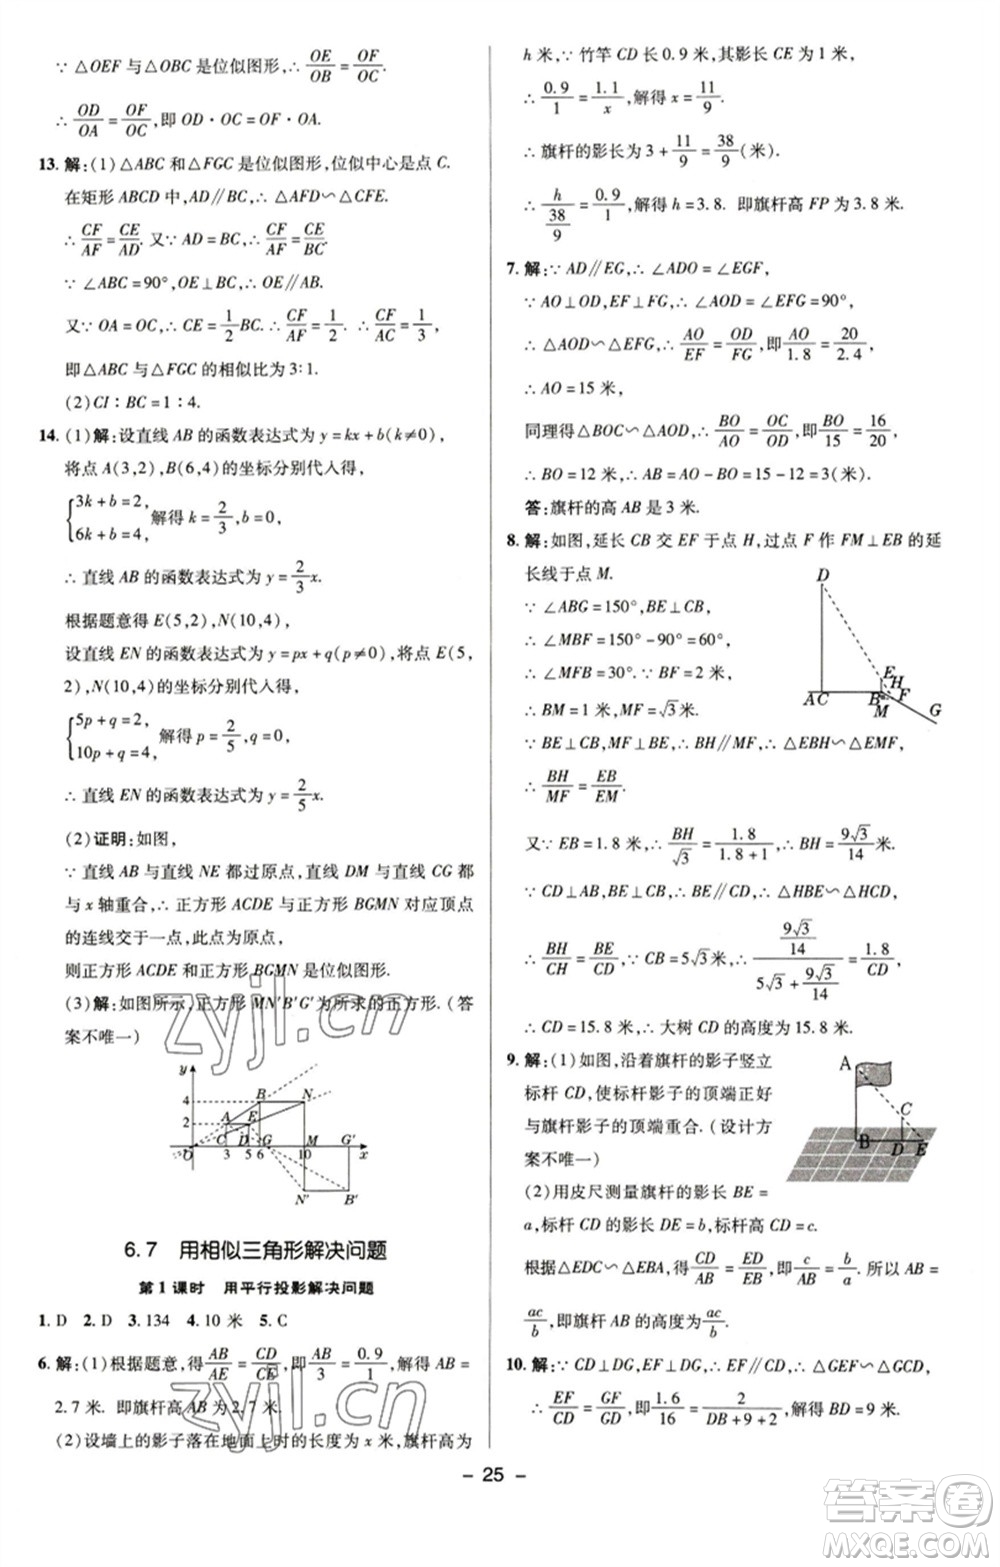 ∵ △OEF与△OBC是位似图形,∴ OE/OB = OF/OC.
∴ OD/OA = OF/OC,即 OD·OC=OF·OA.
13. 解:(1)△ABC 和△FGC 是位似图形,位似中心是点 C.
在矩形 ABCD 中,AD∥BC,∴ △AFD∽△CFE.
∴ CF/AF = CE/AD. 又∵ AD=BC,∴ CF/AF = CE/BC.
∵ ∠ABC=90°,OE⊥BC,∴ OE∥AB.
又∵ OA=OC,∴ CE= 1/2 BC. ∴ CF/AF = 1/2. ∴ CF/AC = 1/3,
即△ABC 与△FGC 的相似比为 3:1.
(2)CI:BC=1:4.
14. (1)解:设直线 AB 的函数表达式为 y=kx+b(k≠0),
将点 A(3,2),B(6,4)的坐标分别代入得,
{3k+b=2, 6k+b=4, 解得 k= 2/3 ,b=0,
∴ 直线 AB 的函数表达式为 y= 2/3 x.
根据题意得 E(5,2),N(10,4),
设直线 EN 的函数表达式为 y=px+q(p≠0),将点 E(5,
2),N(10,4)的坐标分别代入得,
{5p+q=2, 10p+q=4, 解得 p= 2/5 ,q=0,
∴ 直线 EN 的函数表达式为 y= 2/5 x.
(2)证明:如图,
∵ 直线 AB 与直线 NE 都过原点,直线 DM 与直线 CG 都
与 x 轴重合,∴ 正方形 ACDE 与正方形 BGMN 对应顶点
的连线交于一点,此点为原点,
则正方形 ACDE 与正方形 BGMN 是位似图形.
(3)解:如图所示,正方形 MN′B′G′为所求的正方形.(答
案不唯一)
zyjl.cn
y
4 B N
2 A E
O C D G M G′
3 5 6 10 x
N′ B′
6.7 用相似三角形解决问题
第 1 课时 用平行投影解决问题
1. D 2. D 3. 134 4. 10 米 5. C
6. 解:(1)根据题意,得 AB/AE = CD/CE ,即 AB/3 = 0.9/1 ,解得 AB=
2.7 米. 即旗杆高 AB 为 2.7 米.
zyjl.cn
(2)设墙上的影子落在地面上时的长度为 x 米,旗杆高为
h 米,∵ 竹竿 CD 长 0.9 米,其影长 CE 为 1 米,
∴ 0.9/1 = 1.1/x ,解得 x= 11/9 .
∴ 旗杆的影长为 3+ 11/9 = 38/9 (米).
∴ h/(38/9) = 0.9/1 ,解得 h=3.8. 即旗杆高 FP 为 3.8 米.
7. 解:∵ AD∥EG,∴ ∠ADO=∠EGF,
∵ AO⊥OD,EF⊥FG,∴ ∠AOD=∠EFG=90°,
∴ △AOD∽△EFG,∴ AO/EF = OD/FG ,即 AO/1.8 = 20/2.4 ,
∴ AO=15 米,
同理得△BOC∽△AOD,∴ BO/AO = OC/OD ,即 BO/15 = 16/20 ,
∴ BO=12 米,∴ AB=AO-BO=15-12=3(米).
答:旗杆的高 AB 是 3 米.
8. 解:如图,延长 CB 交 EF 于点 H,过点 F 作 FM⊥EB 的延
长线于点 M.
∵ ∠ABG=150°,BE⊥CB,
∴ ∠MBF=150°-90°=60°,
∴ ∠MFB=30°. ∵ BF=2 米,
∴ BM=1 米,MF=√3 米.
∵ BE⊥BC,MF⊥BE,∴ BH∥MF,∴ △EBH∽△EMF,
D
E
H
AC B F
M G
∴ BH/MF = EB/EM.
又∵ EB=1.8 米,∴ BH/√3 = 1.8/(1.8+1) ,∴ BH= 9√3/14 米.
∵ CD⊥AB,BE⊥AB,∴ △HBE∽△HCD,
∴ BH/CH = BE/CD ,∵ CB=5√3 米,∴ (9√3/14)/(5√3+9√3/14) = 1.8/CD ,
∴ CD=15.8 米,∴ 大树 CD 的高度为 15.8 米.
9. 解:(1)如图,沿着旗杆的影子竖立
标杆 CD,使标杆影子的顶端正好
与旗杆影子的顶端重合.(设计方
案不唯一)
A
C
B D E
(2)用皮尺测量旗杆的影长 BE=
a,标杆 CD 的影长 DE=b,标杆高 CD=c.
根据△EDC∽△EBA,得 CD/AB = ED/EB ,即 c/AB = b/a . 所以 AB=
ac/b ,即旗杆 AB 的高度为 ac/b .
10. 解:∵ CD⊥DG,EF⊥DG,∴ △GEF∽△GCD,
∴ EF/CD = GF/GD ,即 1.6/16 = 2/(DB+9+2) ,解得 BD=9 米,
- 25 -
答案圈
MXQE.COM